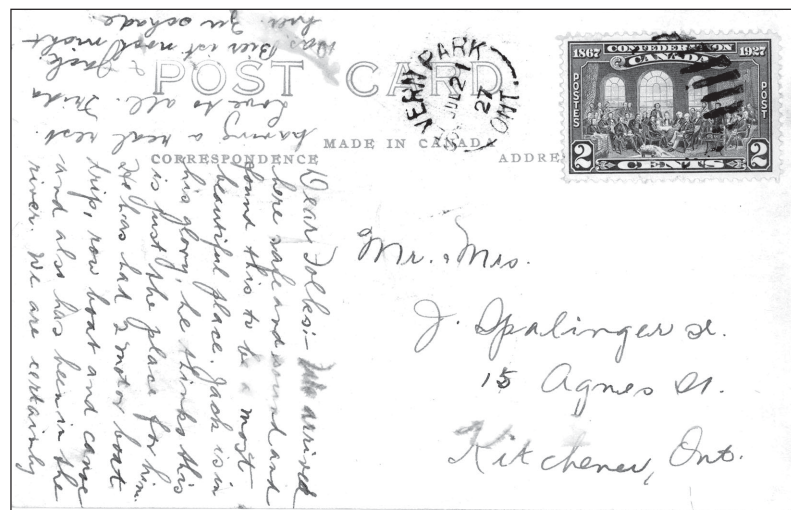 POST CARD
MADE IN CANADA
CORRESPONDENCE
VERN PARK
JUL 21
27
ONT.
1867 CONFEDERATION 1927
CANADA
POSTES
POST
2 CENTS 2
Dear Folks:- We arrived
here safe and sound and
found this to be a most
beautiful place. Jack is in
his glory, he thinks this
is just the place for him.
He has had 2 motor boat
trip, row boat and canoe
and also has bein in the
river. We are certainly
having a real rest.
Love to all. Frida
& Jack
Das Bier ist noch nicht
hier. Zu schade.
Mr. & Mrs.
J. Spalinger sr.
15 Agnes St.
Kitchener, Ont.